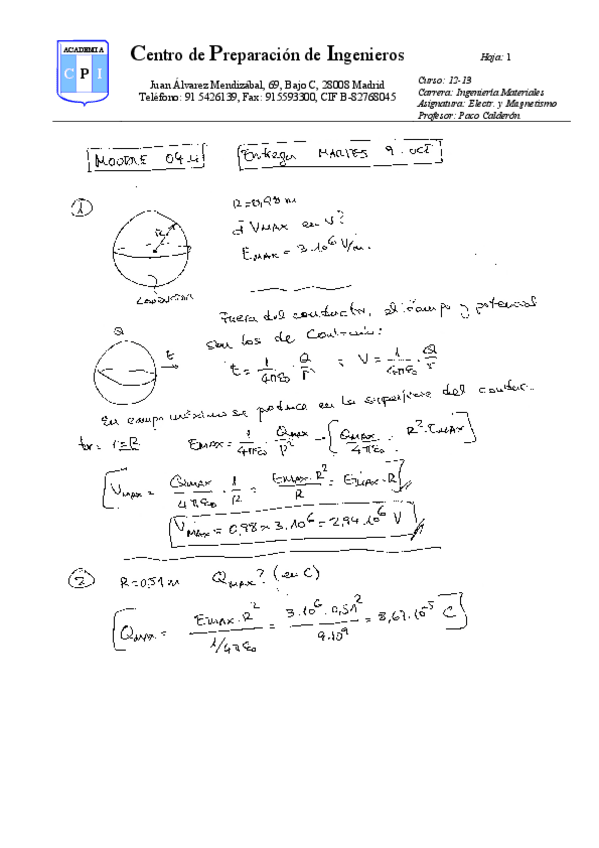 ACADEMIA
C P I
Centro de Preparación de Ingenieros
Hoja: 1
Juan Álvarez Mendizábal, 69, Bajo C, 28008 Madrid
Teléfono: 91 5426139, Fax: 915593300, CIF B-82768045
Curso: 12-13
Carrera: Ingeniería Materiales
Asignatura: Electr. y Magnetismo
Profesor: Paco Calderón
MOODLE 04.4 Entrega MARTES 9. OCT
1
R=0,98 m
¿VMAX en V?
EMAX = 3·10⁶ V/m.
R
CONDUCTOR
Fuera del conductor, el campo y potencial
son los de Coulomb:
Q
E
E = 1/4πε₀ · Q/r² ; V = 1/4πε₀ · Q/r
En campo máximo se produce en la superficie del conduc-
tor: r=R EMAX = 1/4πε₀ · QMAX/R² → [QMAX/4πε₀ = R²·EMAX]
[VMAX = QMAX/4πε₀ · 1/R = EMAX·R²/R = EMAX·R]
VMAX = 0,98 × 3·10⁶ = 2,94·10⁶ V
2 R=0,51 m QMAX? (en C)
[QMAX = EMAX·R²/1/4πε₀ = 3·10⁶·0,51²/9·10⁹ = 8,67·10⁻⁵ C]